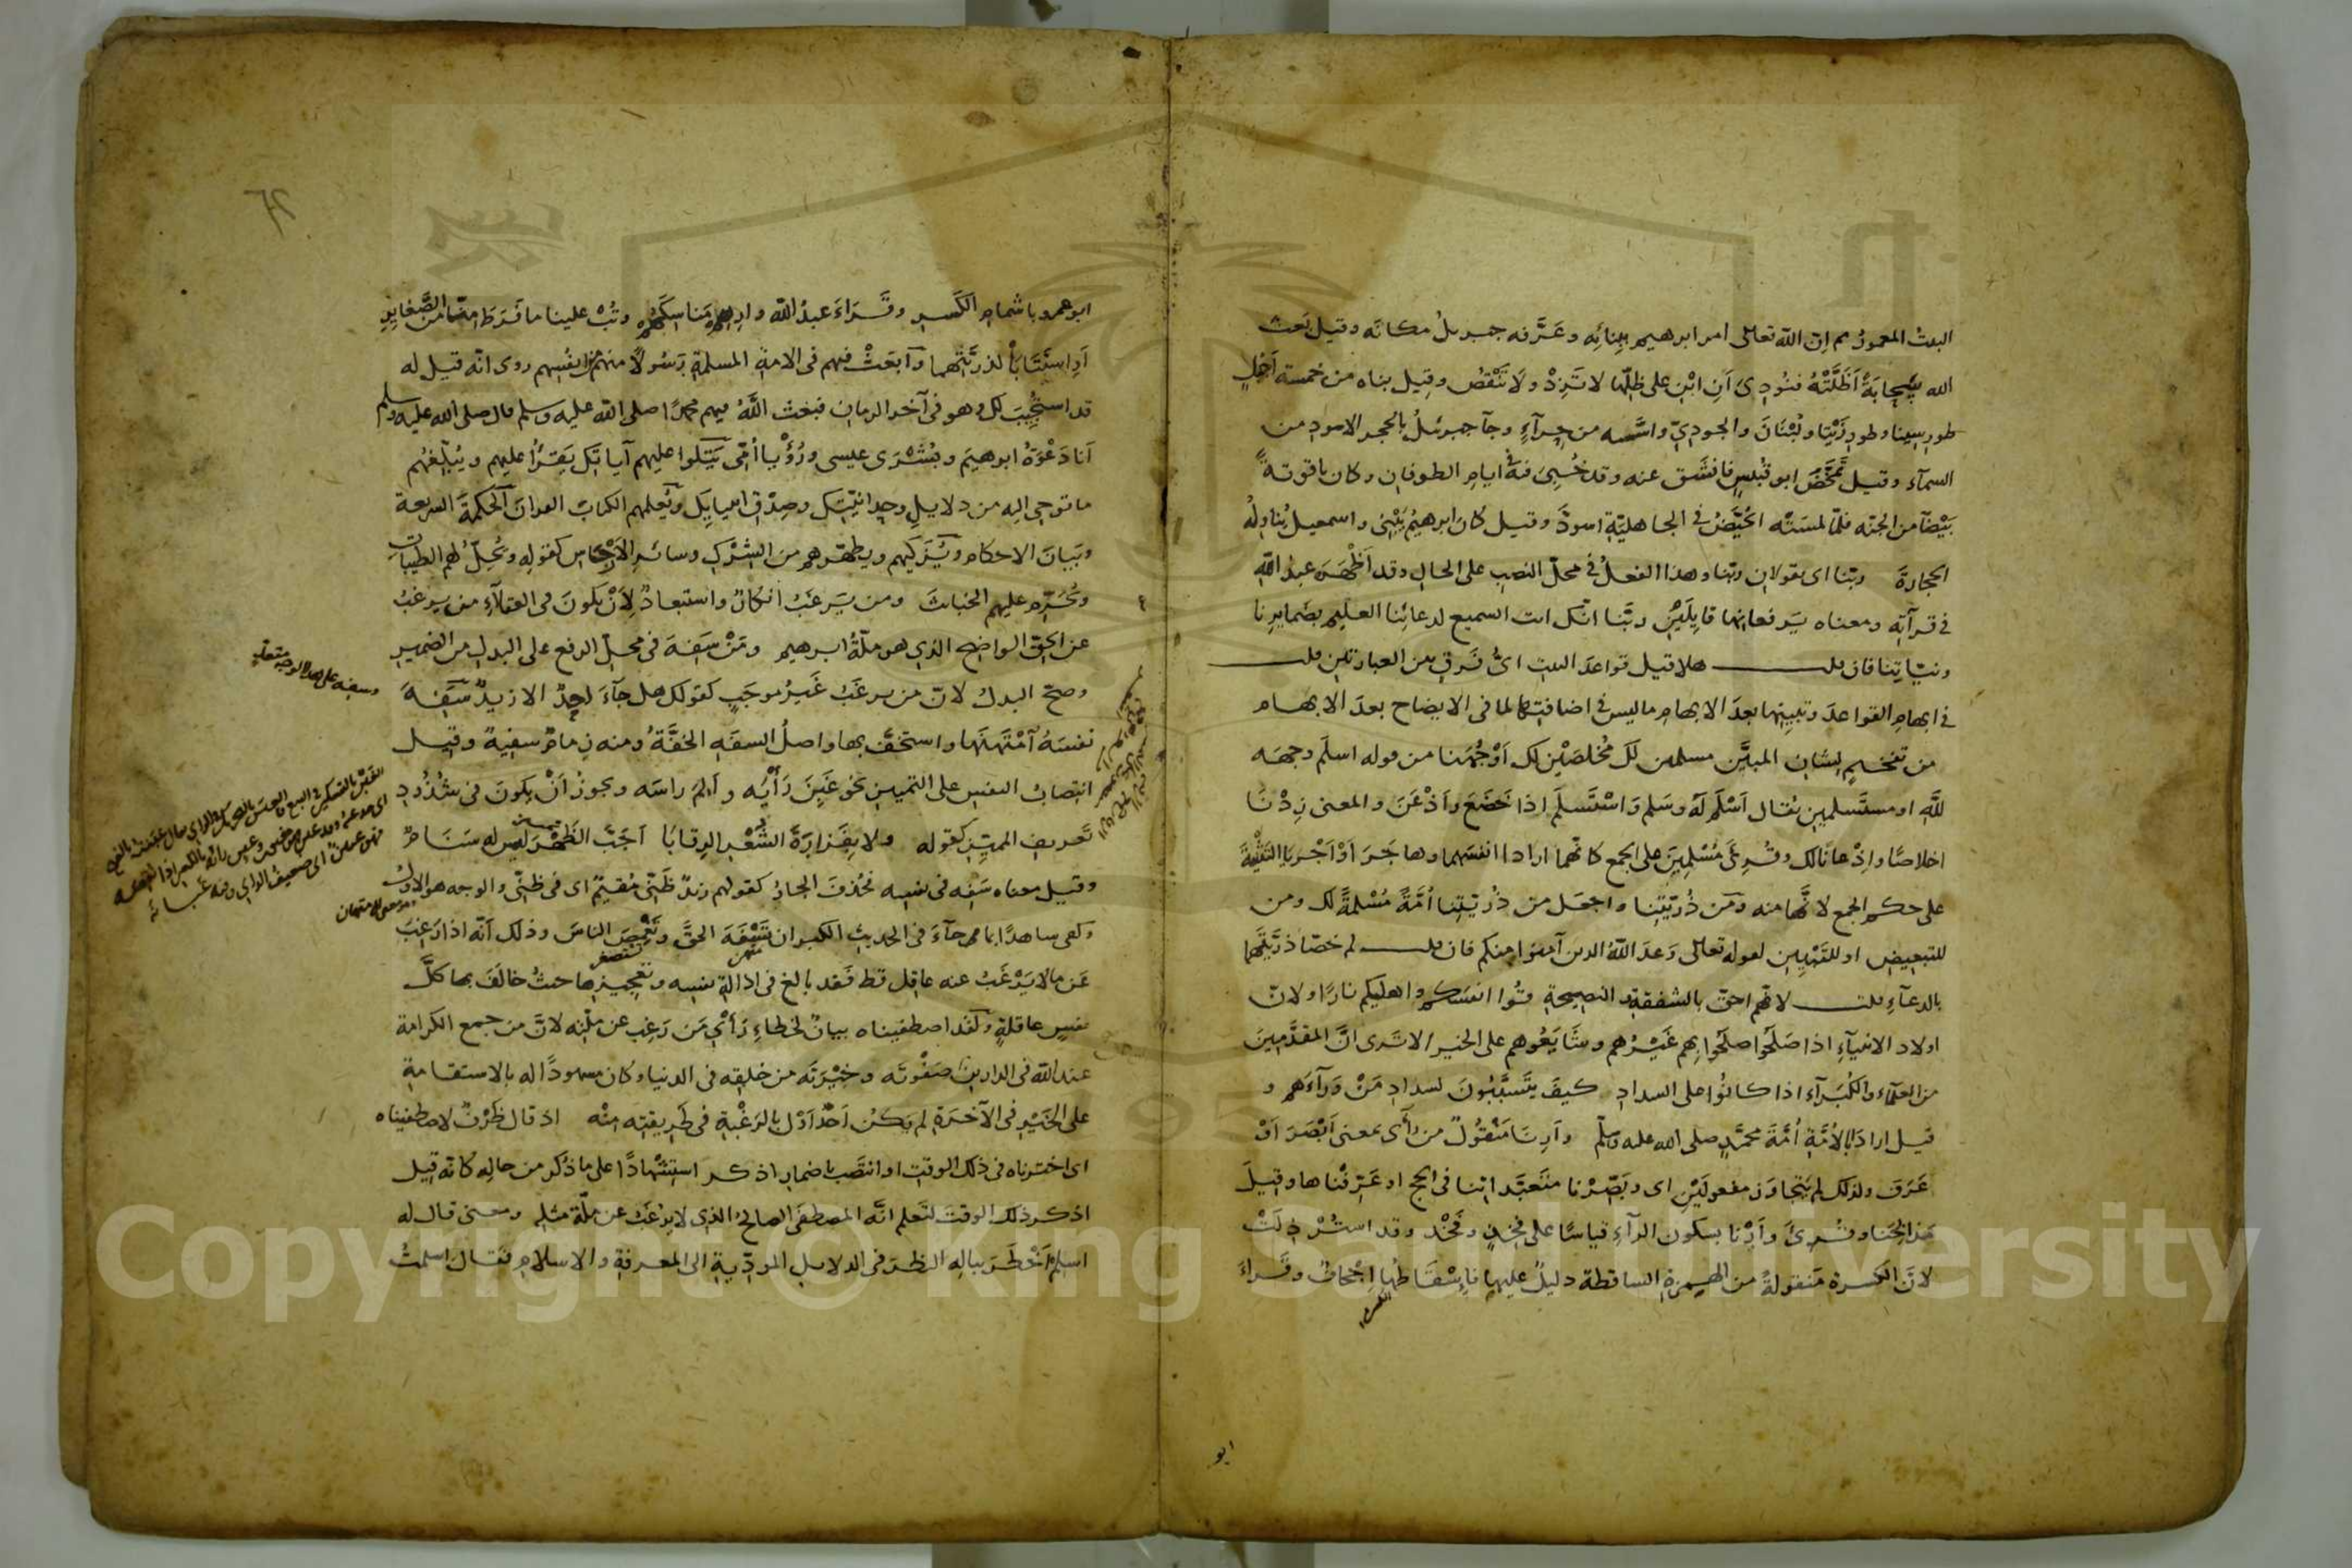 البيت المعمور ثم ان الله تعالى امر ابرهيم ببِنائِه وعَرَّفه جبريلُ مكانَه وقيل بَعث
الله سحابَةً أَظَلَّتْهُ فنُودِىَ أَنِ ابْنِ على ظِلِّها لا تَزِدْ ولَا تَنْقُصْ وقِيل بناه من خمسة أَجْبُلٍ
طورِ سِينا وطورِ زَيْتا ولُبْنَانَ والجودِيّ واسَّسه من حِرآءٍ وجآ جبرئيلُ بالحجر الاسودِ من
السمآء وقيل تَمَخَّضَ ابو قُبَيْسٍ فانْشَق عنه وقد خُبِئَ فيه في ايامِ الطوفانِ وكان ياقوتةً
بَيْضَآ من الجنّه فلمّا لمسَتْه الحُيَّضُ في الجاهليّةِ اسودَّ وقيل كان ابرهيمُ يَبْنِى واسمعيلُ يُناوِلُه
الحجارةَ ربّنا اى يقولان ربّنا وهذا الفعلُ في محلّ النصبِ على الحالِ وقد أَظْهَرَه عبدُ اللّه
في قرآتِه ومعناه يَرفعانها قايِلَيْنِ ربَّنا انّك انت السميع لدعائِنا العليم بضمايرِنا
ونيّاتِنا فان قلت هلا قيل قواعدَ البيت اىُّ فَرقٍ بين العبارتين قلت
في ابهامِ القواعدَ وتبيينِها بعدَ الابهام ما ليس في اضافتها لما في الايضاح بعدَ الابهام
من تفخيمٍ لِشان المبيَّن مسلمين لَكَ مُخلصَيْنِ لك أَوْجُهَنا من قوله اسلَم وجهَه
للَّهِ او مستَسلمين يُقال أَسْلَم لَهُ وسَلم وَاسْتَسلَم اِذا خَضَعَ وأَذْعَنَ والمعنى زِدْنَا
اخلاصًا واِذْعانًا لك وقُرِئَ مُسْلِمِينَ على الجمع كانّهما ارادا انفسَهما وهاجَرَ أَوْ أَجْرَيَا التَثْنِيَةَ
على حكمِ الجمع لانَّها منه وَمِن ذُرّيّتِنا واجعَل من ذُرّيّتِنا أُمَّةً مُسْلمةً لك ومن
للتبعيضِ او للتَبْيِينِ لقوله تعالى وَعدَ اللَّهُ الذين آمنوا منكم فان قلت لم خصّا ذرّيّتَهما
بالدعآءِ قلت لانّهم احقّ بالشفقةِ والنصيحةِ قُوا انفسَكم واهليكم نارًا ولانّ
اولاد الانبيآءِ اذا صَلَحُوا صلَحُوا بِهم غَيْرُهم وشَايَعُوهم على الخيرِ الا تَرى انَّ المقدَّمينَ
من العلمآءِ والكُبَرآءِ اذا كانُوا على السدادِ كيفَ يتَسَبَّبُونَ لسدادِ مَنْ وَرَآءَهم و
قيل ارادَا بالأُمَّةِ أُمَّةَ محمَّدٍ صلى الله عليه وسلّم وأَرِنَا مَنْقُولٌ من رأَى بمعنى أَبْصَرَ أَوْ
عَرَفَ ولذلك لم يَتجاوَز مفعولَيْنِ اى وبَصِّرْنا متَعبَّداتِنا في الحج او عَرِّفْناها وقِيلَ
مَذابِحَنا وقُرِئَ وأَرْنا بسكون الرآءِ قياسًا على فَخِذٍ وفَخْذ وقد استُرْذِلَتْ
لانَّ الكسرة مَنقولةٌ من الهمزةِ الساقطة دليلٌ عليها فاِسْقَاطُها اِجْحافٌ وقَراءَ
ابو
ابو عمرو باشمامِ الكَسرِ وقَراءَ عبدُ اللّه وارِهم مَناسِكَهم وتُبْ علينا ما فَرَطَ منّا من الصَّغايرِ
أَوِ اسْتَتَابَا لذرّيّتِهما وابعَثْ فيهم في الامة المسلمةِ رَسُولًا منهم من انفُسِهم روى انّه قيل له
قد استُجِيبَ لك وهو في آخر الزمانِ فبَعَثَ اللَّهُ فيهم محمدًا صلى اللّه عليه وسلم قال صلى الله عليه وسلم
أَنا دَعْوَةُ ابرهيمَ وبُشْرَى عيسى ورُؤْيا أُمّى يَتْلوا عليهم آياتك يَقرَأُ عليهم ويُبَلّغُهم
ما توحى اليه من دلايلِ وحدانيّتِك وصِدْقِ انبيايِك ويُعلمهم الكتابَ القرانَ والحكمةَ الشريعة
وبَيانَ الاحكامِ ويُزَكيهم ويطهّرهم من الشِرْكِ وسائرِ الارجاسِ كقولِه ويُحِلّ لهم الطيباتِ
ويُحَرّم عليهم الخبائثَ ومن يَرغَبُ انكارٌ واستبعادٌ لِأَنْ يكونَ في العقلآءِ من يرغبُ
عن الحقّ الواضحِ الذي هو ملّةُ ابرهيم ومَنْ سَفِهَ في محلّ الرفع على البدلِ من الضميرِ
وصحّ البدلُ لانّ من يرغبُ غَيرُ موجَبٍ كقولك هل جآءَ احدٌ الا زيدٌ سَفِهَ
نفسَهُ امْتَهَنَها واستخفَّ بها واصلُ السفَهِ الخفَّةُ ومنه زمامٌ سفيهٌ وقيل
انتِصابُ النفسِ على التمييزِ نحو غَبِنَ رَأْيَه وأَلِمَ راسَه ويجوزُ أَنْ يكونَ في شُذُوذِ
تَعريفِ المميّزِ كقوله ولا بفَزارَةَ الشُعْرِ الرِقابَا أَجَبَّ الظَهْرِ ليس له سَنَامٌ
وقيل معناه سَفِه في نفسِه فحُذفَ الجارُ كقولهم زيدٌ ظَنّى مُقيمٌ اى في ظنّى والوجه هو الاول
وكفى شاهدًا بما جآءَ في الحديثِ الكبر ان تَسْفَهَ الحقَّ وتَغْمِصَ الناسَ وذلك أنّه اذا رَغِبَ
عَن ما لا يَرْغَبُ عنه عاقل قط فقد بالغ في اذالةِ نفسِه وتعجيزها حيثُ خالَفَ بها كلَّ
نفسٍ عاقلةٍ ولقد اصطفيناه بيانٌ لخطاءِ رَأْي مَن رَغِبَ عن ملّتِه لانَّ من جمع الكرامة
عند اللّه في الدارين صَفْوتَه وخِيْرتَه من خلقِه في الدنيا وكان مشهودًا له بالاستقامةِ
على الخَيْرِ في الآخرَةِ لم يكن أَحَدٌ أَوْلى بالرَغْبةِ في طَريقتِه مِنْه اذ قال ظَرْفٌ لاصطفيناه
اى اخترناه في ذلك الوقتِ او انتَصَب باضمارِ اذكر استِشْهادًا على ما ذُكر من حالِه كانّه قيل
اذكر ذلك الوقتَ لتَعلم انَّه المصطفَى الصالحُ الذي لا يُرْغَبُ عن ملّةِ مثلِه ومعنى قال له
اسلِم أَخْطَرَ ببالِه النظرَ في الدلايلِ المؤدّيةِ الى المعرفةِ والاسلامِ فقال اسلمتُ
وسفه على هذا الوجه متعدٍ